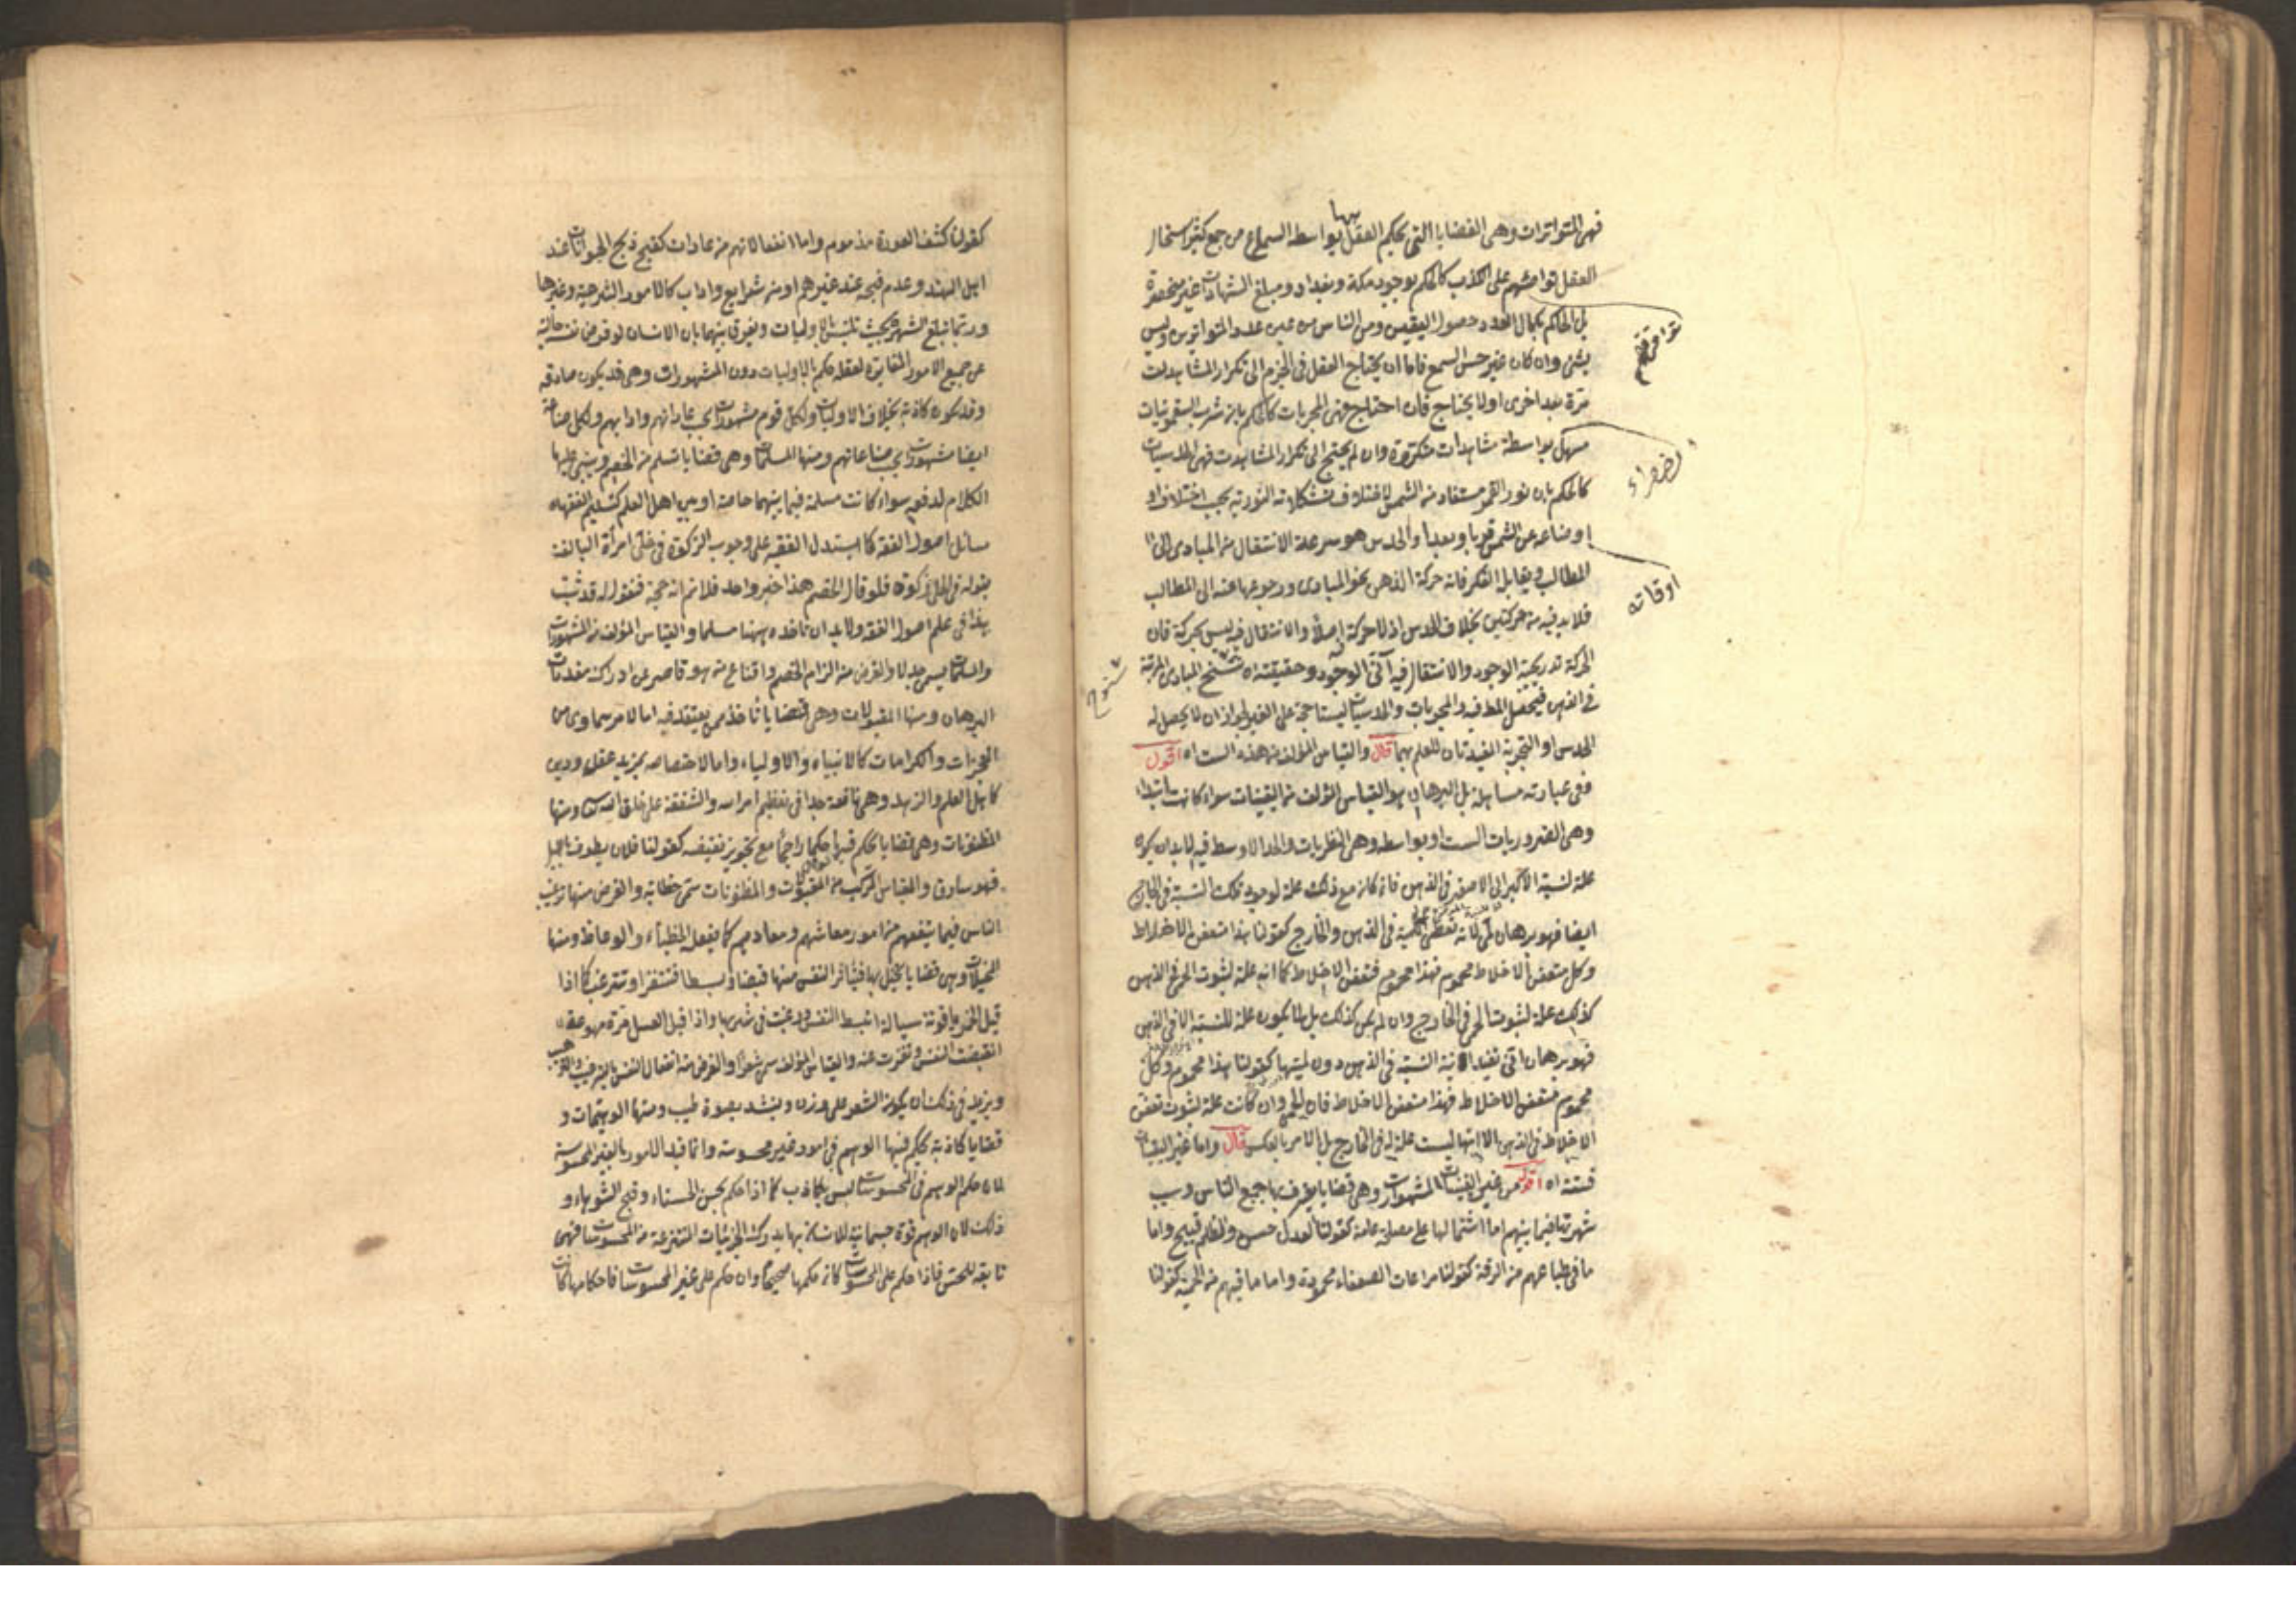 فهى المتواترات وهى القضايا التى يحكم العقل بها بواسطة السماع من جمع كثير استحال
العقل توامثهم على الكذب كالحكم بوجود مكة وبغداد ومبلغ الشهادات غير منحصرة
بل الحاكم بكمال العدد حصول اليقين ومن الناس من عين عدد المتواترين وليس
بشئ وان كان غير حس السمع فاما ان يحتاج العقل فى الجزم الى تكرار المشاهدات
مرة بعد اخرى او لا يحتاج فان احتاج فهى المجربات كالحكم بان شرب السقمونيات
مسهل بواسطة مشاهدات متكررة وان لم يحتج الى تكرار المشاهدت فهى الحدسيات
كالحكم بان نور القمر مستفاد من الشمس لاختلاف تشكلاته النورية بحسب اختلاف او
اوضاعه عن الشمس قربا وبعدا والحدس هو سرعة الانتقال من المبادى الى
المطالب ويقابله الفكر فانه حركة الذهن نحو المبادى ورجوعها عنه الى المطالب
فلا بد فيه من حركتين بخلاف الحدس اذ لا حركة فيه اصلا والانتقال فيه ليس بحركة فان
الحركة تدريجية الوجود والانتقال فيه آنى الوجود وحقيقته ان تسنح المبادى المرتبة
فى الذهن فيحصل المط فيه والمجربات والحدسيات ليستا حجة على الغير لجواز ان لا يحصل له
الحدس او التجربة المفيدتان للعلم بهما قال والقياس المؤلف من هذه الست اه اقول
ففى عبارته مساهلة بل البرهان هو القياس المؤلف من اليقينيات سواء كانت ابتداء
وهى الضروريات الست او بواسطه وهى النظريات والحد الاوسط فيه لابد ان يكون
علة لنسبة الاكبر الى الاصغر فى الذهن فان كان مع ذلك علة لوجود تلك النسبة فى الخارج
ايضا فهو برهان لمى لانه تعطى اللمية فى الذهن والخارج كقولنا هذا متعفن الاخلاط
وكل متعفن الاخلاط محموم فهذا محموم فتعفن الاخلاط كما انه علة لثبوت الحمى فى الذهن
كذلك علة لثبوت الحمى فى الخارج وان لم يكن كذلك بل لا يكون علة للنسبة الا فى الذهن
فهو برهان انى تفيد انية النسبة فى الذهن دون لميتها كقولنا هذا محموم وكل
محموم متعفن الاخلاط فهذا متعفن الاخلاط فان الحمى وان كانت علة لثبوت تعفن
الاخلاط فى الذهن الا انها ليست علة له فى الخارج بل الامر بالعكس قال واما غير اليقينيات
فستة اه اقول من غير اليقينيات المشهورات وهى قضايا يعترف بها جميع الناس وسبب
شهرتها فيما بينهم اما اشتمالها على مصلحة عامة كقولنا العدل حسن والظلم قبيح واما
ما فى طباعهم من الرقة كقولنا مراعات الضعفاء محمودة واما ما فيهم من الحمية كقولنا
توافقهم
اوقاته
سنوح
كقولنا كشف العورة مذموم واما انفعالاتهم من عادات كقبح ذبح الحيوانات عند
اهل الهند وعدم قبحه عند غيرهم او من شرايع واداب كالامور الشرعية وغيرها
وربما تبلغ الشهرة بحيث تلتبس بالاوليات ويفرق بينهما بان الانسان لو فرض نفسه خالية
عن جميع الامور المغايرة لعقله حكم بالاوليات دون المشهورات وهى قد يكون صادقه
وقد يكون كاذبة بخلاف الاوليات ولكل قوم مشهورات بحسب عاداتهم وادابهم ولكل صناعة
ايضا مشهورات بحسب صناعاتهم ومنها المسلمات وهى قضايا تسلم من الخصم ويبنى عليها
الكلام لدفعه سواء كانت مسلمة فيما بينهما خاصة او بين اهل العلم كتسليم الفقهاء
مسائل اصول الفقه كما استدل الفقيه على وجوب الزكوة فى حلى امرأة البالغة
بقوله فى الحلى زكوة فلو قال الخصم هذا خبر واحد فلا نم انه حجة فنقول له قد ثبت
هذا فى علم اصول الفقه ولابد ان تاخذه ههنا مسلما والقياس المؤلف من المشهورات
والمسلمات يسمى جدلا والغرض منه الزام الخصم واقناع من هو قاصر عن ادراك مقدمات
البرهان ومنها المقبولات وهى قضايا تاخذ ممن يعتقد فيه اما لامر سماوى من
المعجزات والكرامات كالانبياء والاولياء واما لاختصاصه بمزيد عقل ودين
كاهل العلم والزهد وهى نافعة جدا فى تعظيم امر الله والشفقة على خلق الله تعا ومنها
المظنونات وهى قضايا يحكم فيها حكما راجحا مع تجويز نقيضه كقولنا فلان يطوف بالليل
فهو سارق والقياس المركب من المقبولات والمظنونات سمى خطابة والغرض منها ترغيب
الناس فيما ينفعهم من امور معاشهم ومعادهم كما يفعل الخطباء والوعاظ ومنها
المخيلات وهى قضايا يخيل بها فيتاثر النفس منها قبضا وبسطا فتنفر او تترغب كما اذا
قيل الخمر ياقوتة سيالة انبسط النفس ورغبت فى شربها واذا قيل العسل مرة مهوعة
انقبضت النفس ونفرت عنه والقياس المؤلف سمى شعرا والغرض منه انفعال النفس بالترغيب والترهيب
ويزيد فى ذلك ان يكون الشعر على وزن وينشد بصوت طيب ومنها الوهميات و
قضايا كاذبة يحكم فيها الوهم فى امور غير محسوسة وانما قيد الامور بالغير المحسوسة
لان حكم الوهم فى المحسوسات ليس بكاذب كما اذا حكم بحسن الحسناء وقبح الشوهاء و
ذلك لان الوهم قوة جسمانية للانسان بها يدرك الجزئيات المنتزعة من المحسوسات فهى
تابعة للحس فاذا حكم على المحسوسات كان حكمها صحيحا وان حكم على غير المحسوسات فاحكامها كانت